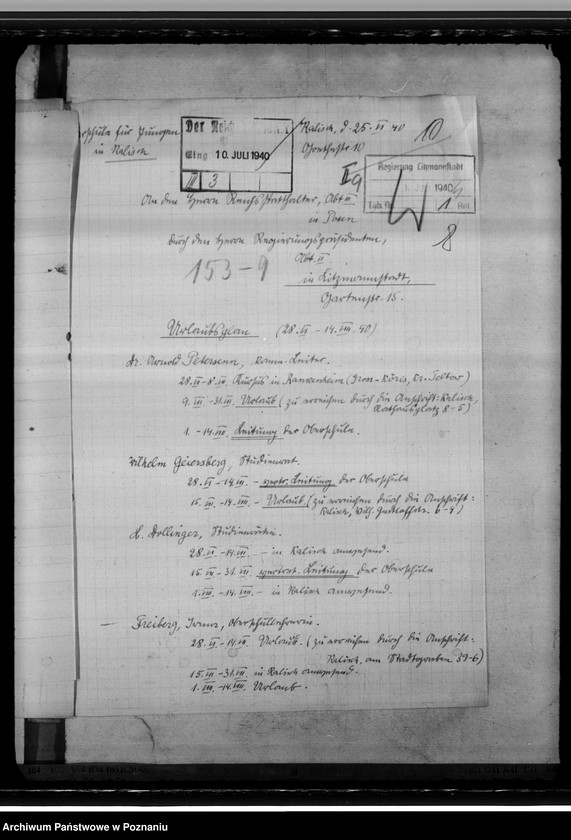 rschule für Jungen
in Kalisch
Kalisch, d. 25. VI 40
Goethestr. 10
10
Der Reich
Eing 10. JULI 1940
III 3
Regierung Litzmannstadt
1940
Tgb. Nr. 1 Anl.
An den Herrn Reichsstatthalter, Abt. III
in Posen
durch den Herrn Regierungspräsidenten,
8
Abt. II
153-9
in Litzmannstadt,
Gartenstr. 15.
Urlaubsplan (28. VI – 14. VIII. 40)
Dr. Arnold Petersenn, komm. Leiter.
28. VI – 8. VII Kursus in Rankenheim (Gross-Köris, Kr. Teltow)
9. VII – 31. VII Urlaub (zu erreichen durch die Anschrift: Kalisch,
Rathausplatz 8-5)
1. – 14. VIII. Leitung der Oberschule.
Wilhelm Geiersberg, Studienrat.
28. VI – 14. VII. – vertr. Leitung der Oberschule
15. VII. – 14. VIII. – Urlaub (zu erreichen durch die Anschrift:
Kalisch, Wilh. Gustloffstr. 6-4)
H. Dollinger, Studienrätin.
28. VI. – 14. VII. – in Kalisch anwesend.
15. VII – 31. VII vertret. Leitung der Oberschule
1. VIII. – 14. VIII. – in Kalisch anwesend.
— Freiberg, Irene, Oberschullehrerin.
28. VI – 14. VII. Urlaub. (zu erreichen durch die Anschrift:
Kalisch, am Stadtgraben 39-6)
15. VII – 31. VII in Kalisch anwesend.
1. VIII. – 14. VIII. Urlaub.
Archiwum Państwowe w Poznaniu